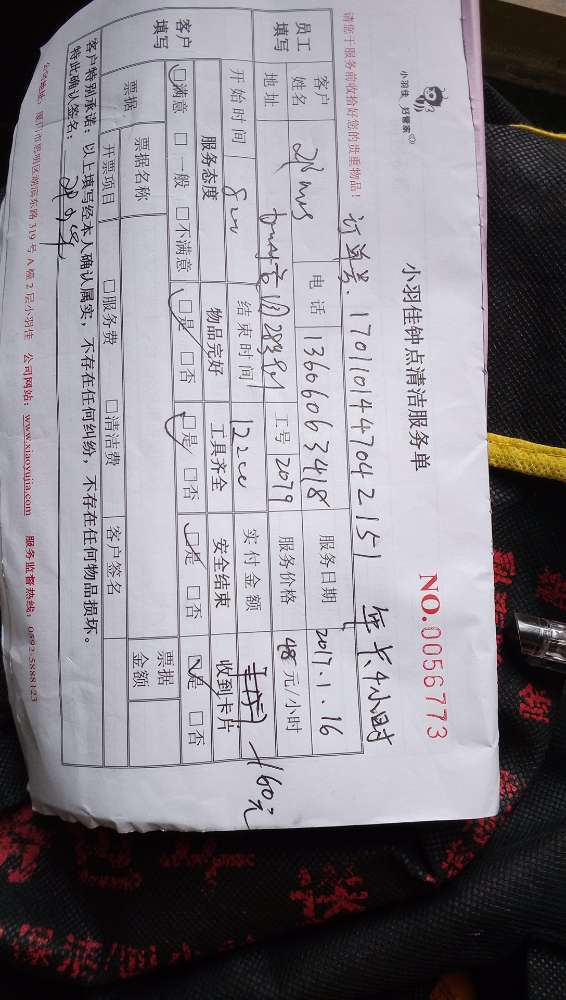 小羽佳 好管家
小羽佳钟点清洁服务单
NO.0056773
请您于服务前收拾好您的贵重物品!
订单号: 17011014470421 51 年卡4小时
员工填写
客户姓名 电话 13606063418 服务日期 2017.1.16
地址 工号 2079 服务价格 48元/小时
开始时间 8:00 结束时间 12:00 实付金额 160元
客户填写
服务态度 物品完好 工具齐全 安全结束 收到卡片
□满意 □一般 □不满意 □是 □否 □是 □否 □是 □否 □是 □否
票据 票据名称 票据金额
开票项目 □服务费 □清洁费 客户签名
客户特别承诺:以上填写经本人确认属实,不存在任何纠纷,不存在任何物品损坏。
特此确认签名:
公司地址:厦门市思明区湖滨东路319号A幢2层小羽佳 公司网站:www.xiaoyujia.com 服务监督热线:0592-5888123